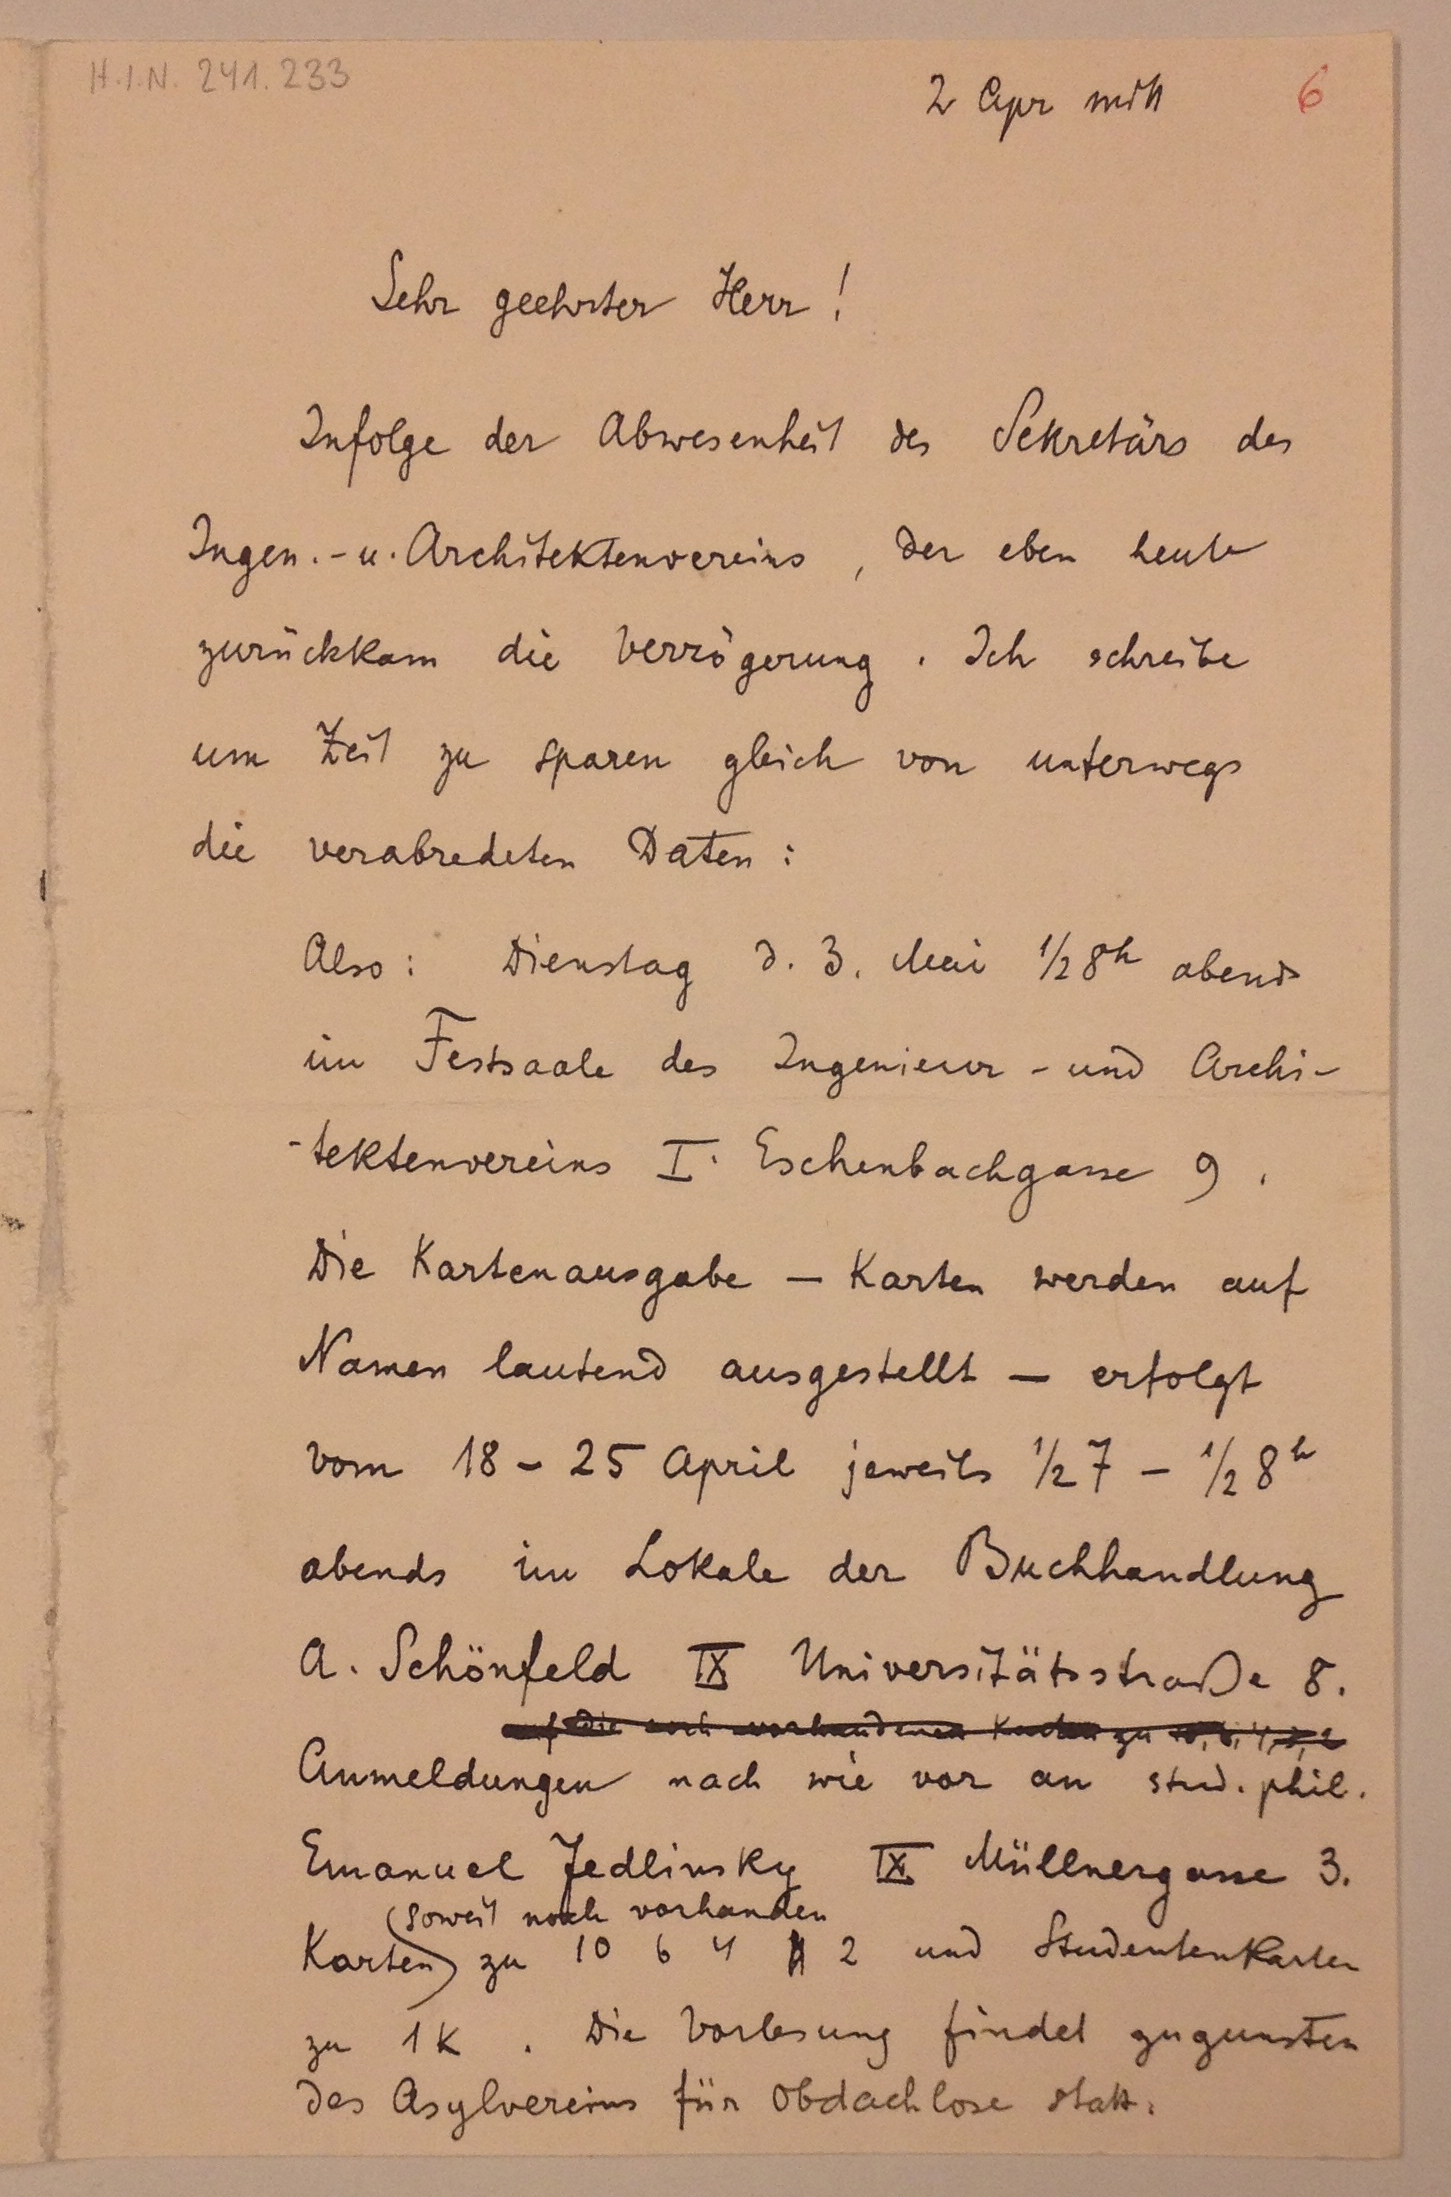 H.I.N. 241.233
2 Apr mitt 6
Sehr geehrter Herr!
Infolge der Abwesenheit des Sekretärs des
Ingen.-u. Architektenvereins, der eben heute
zurückkam die Verzögerung. Ich schreibe
um Zeit zu sparen gleich von unterwegs
die verabredeten Daten:
Also: Dienstag d. 3. Mai 1/2 8h abends
im Festsaale des Ingenieur- und Archi-
-tektenvereins I. Eschenbachgasse 9.
Die Kartenausgabe – Karten werden auf
Namen lautend ausgestellt – erfolgt
vom 18 – 25 April jeweils 1/2 7 – 1/2 8h
abends im Lokale der Buchhandlung
A. Schönfeld IX Universitätsstraße 8.
auf die noch vorhandenen Karten zu
Anmeldungen nach wie vor an stud. phil.
Emanuel Jedlinsky IX Müllnergasse 3.
(soweit noch vorhanden
Karten) zu 10 6 4 2 und Studentenkarten
zu 1 K. Die Vorlesung findet zugunsten
des Asylvereins für Obdachlose statt.